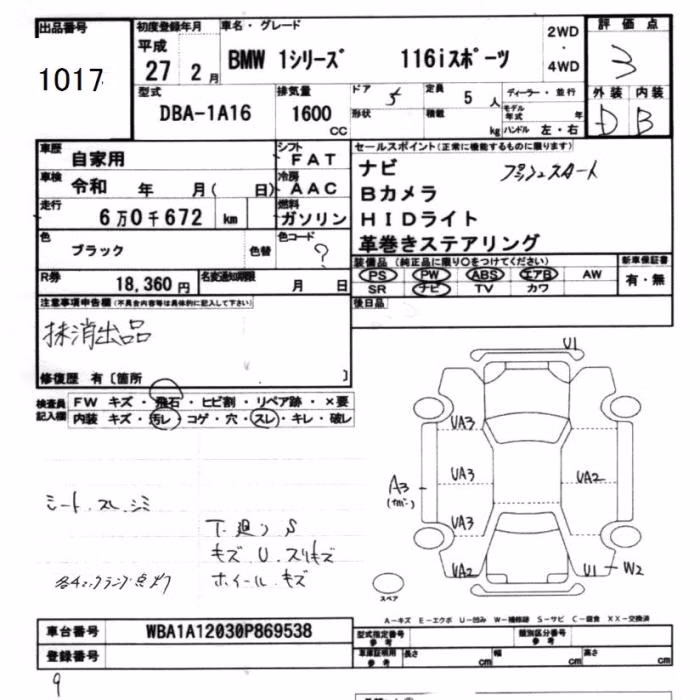 出品番号 初度登録年月 車名・グレード 2WD・4WD 評価点
1017 平成27 2月 BMW 1シリーズ 116iスポーツ 3
型式 排気量 ドア 5 定員 5人 ディーラー・並行 外装 内装
DBA-1A16 1600cc 形状 積載 kg モデル年式 年 D B
ハンドル 左・右
車歴 自家用 シフト FAT セールスポイント(正常に機能するものに限ります)
車検 令和 年 月( 日) 冷房 AAC ナビ プッシュスタート
走行 6万0千672 km 燃料 ガソリン Bカメラ
色 ブラック 色替 色コード ? HIDライト
革巻きステアリング
装備品(純正品に限り○をつけてください) 新車保証書
R券 18,360円 名変通知期限 月 日 PS PW ABS エアB AW 有・無
SR ナビ TV カワ
注意事項申告欄(不具合内容等は具体的に記入して下さい) 後日品
抹消出品
修復歴 有〔箇所 〕
検査員記入欄 FW キズ・飛石・ヒビ割・リペア跡・×要
内装 キズ・汚レ・コゲ・穴・スレ・キレ・破レ
U1
UA3
A3 UA3 UA2
UA3
UA2 U1 W2
シート、スレ、シミ
下廻り S
キズ U スリキズ
各チェックランプ点灯 ホイールキズ
スペア
A-キズ E-エクボ U-凹み W-補修跡 S-サビ C-腐食 XX-交換済
車台番号 WBA1A12030P869538 型式指定番号 参考 類別区分番号 参考
登録番号 車庫証明用 参考 長さ cm 幅 cm 高さ cm
9